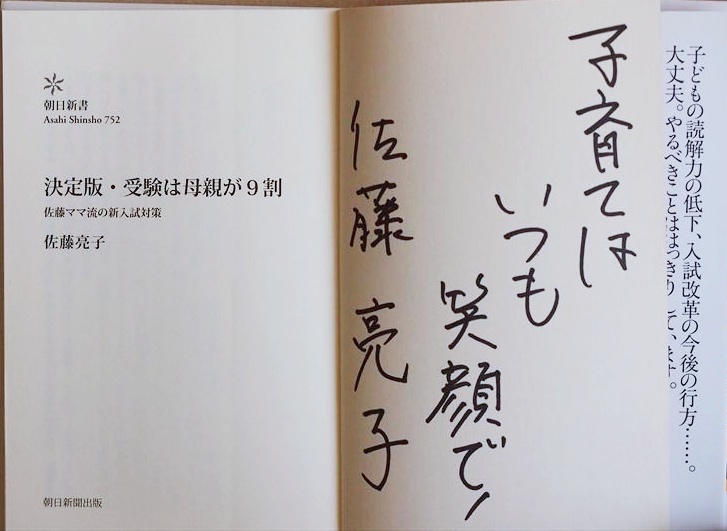 朝日新書
Asahi Shinsho 752
決定版・受験は母親が9割
佐藤ママ流の新入試対策
佐藤亮子
朝日新聞出版
子育ては
いつも
笑顔で!
佐藤 亮子
子どもの読解力の低下、入試改革の今後の行方……。
大丈夫。やるべきことははっきりしています。